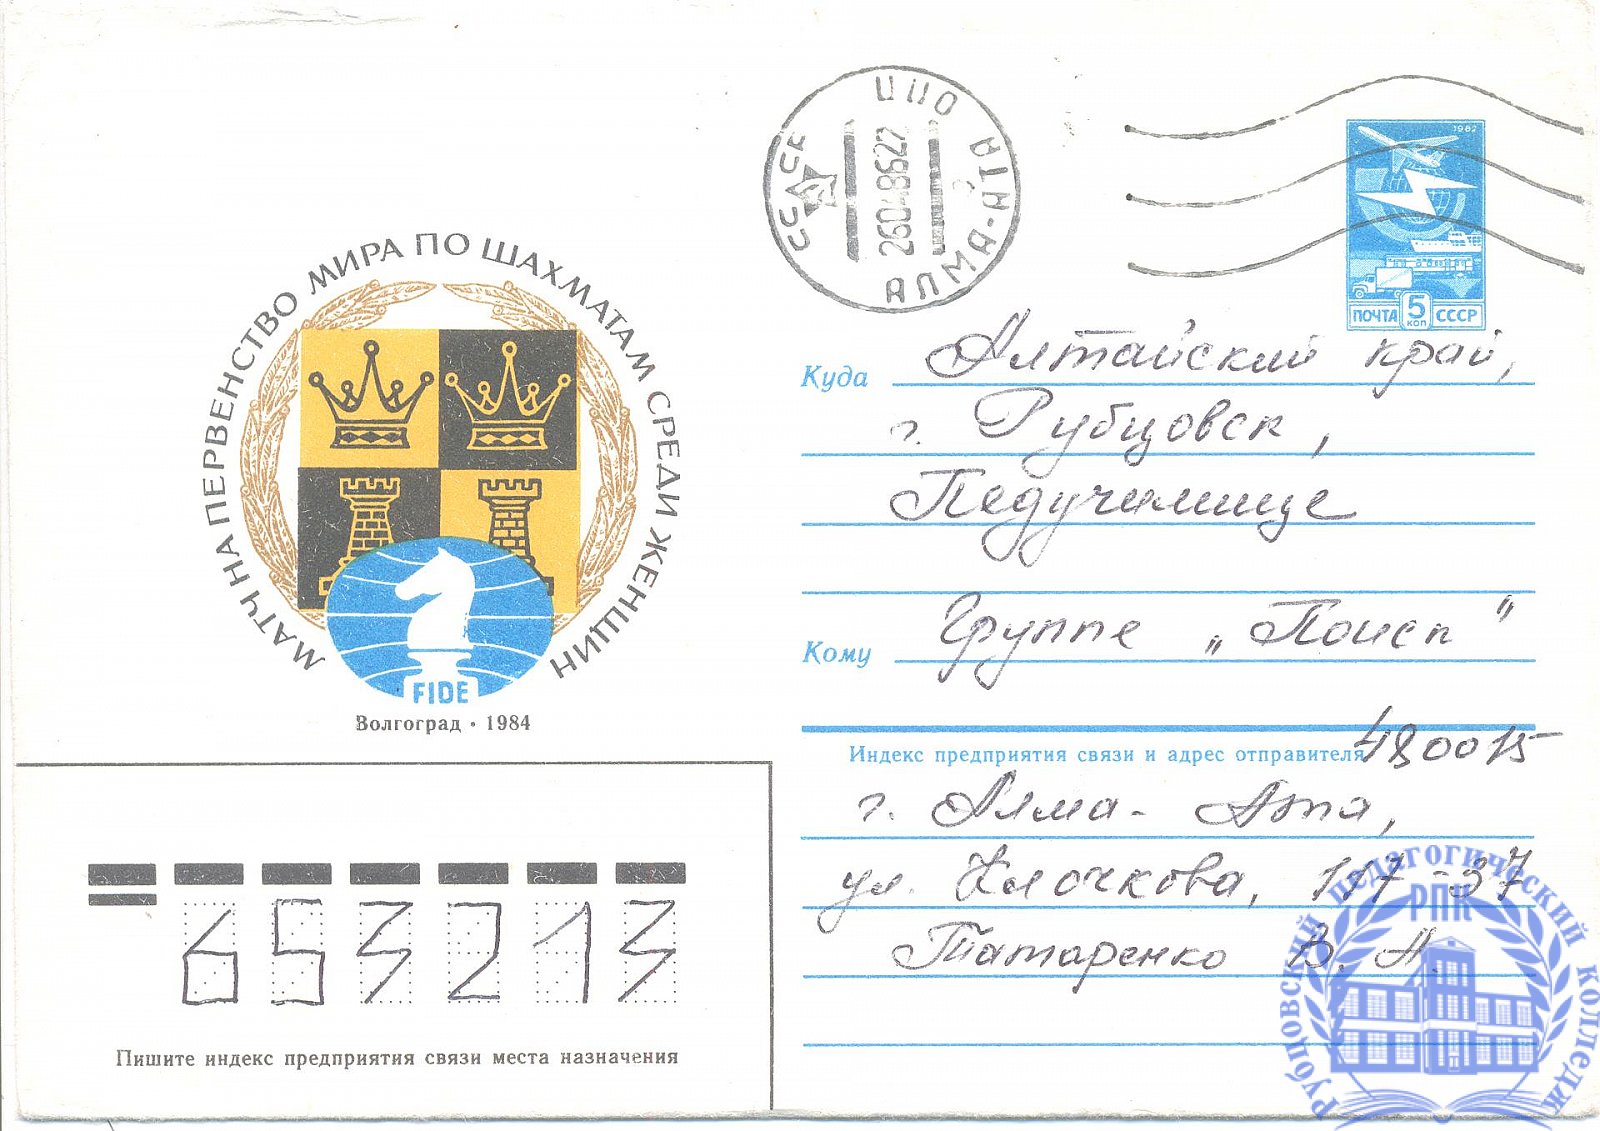 МАТЧ НА ПЕРВЕНСТВО МИРА ПО ШАХМАТАМ СРЕДИ ЖЕНЩИН
FIDE
Волгоград · 1984
СССР
ЦПО
26048622
АЛМА-АТА
1982
ПОЧТА 5 КОП СССР
Куда Алтайский край,
г. Рубцовск,
Педучилище
Кому Группе „Поиск”
Индекс предприятия связи и адрес отправителя 480015
г. Алма-Ата,
ул. Клочкова, 117-37
Татаренко В. А.
653213
Пишите индекс предприятия связи места назначения
Рубцовский педагогический колледж
РПК